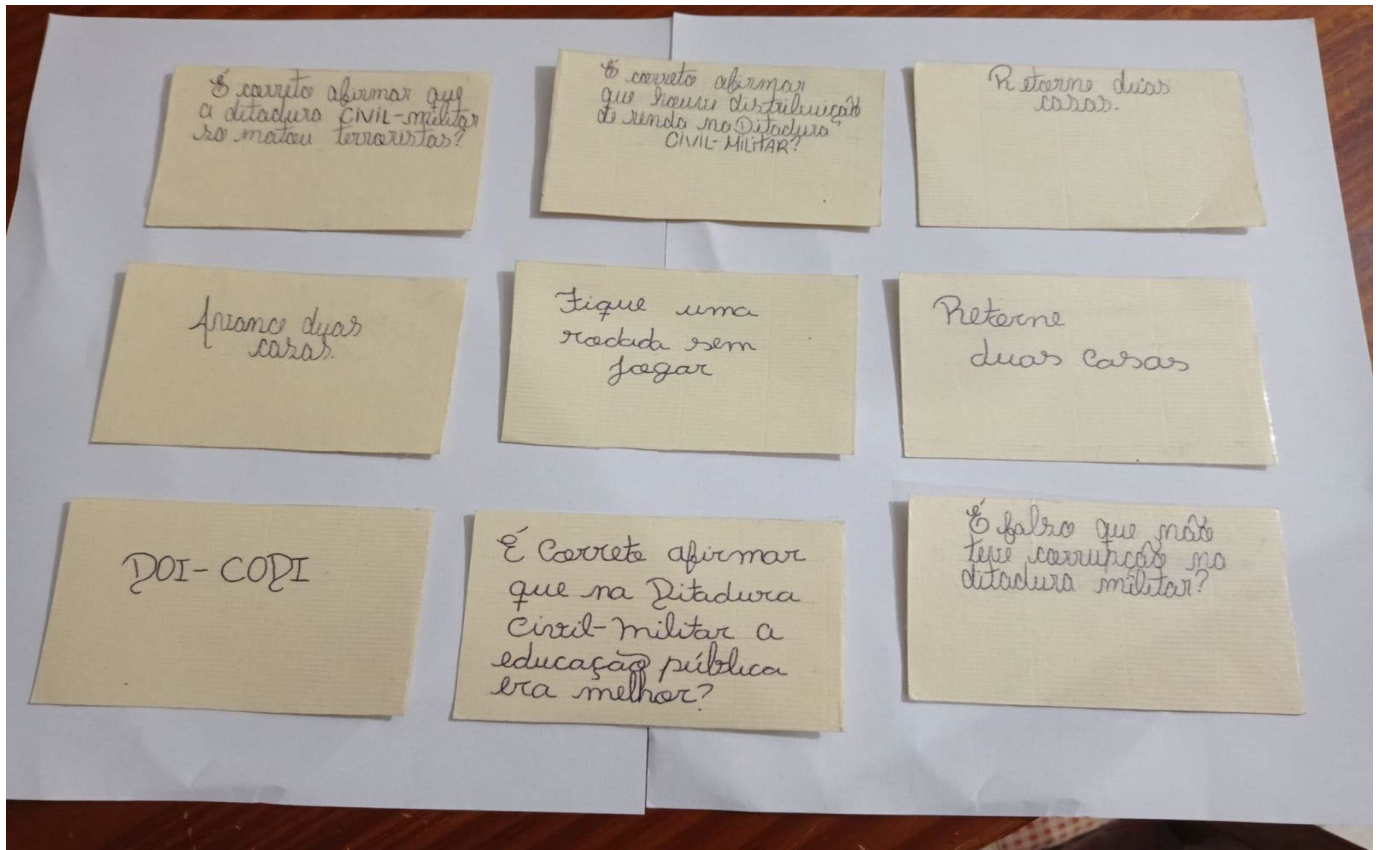 É correto afirmar que
a ditadura CIVIL-militar
só matou terroristas?
É correto afirmar
que houve distribuição
de renda na Ditadura
CIVIL-MILITAR?
Retorne duas
casas.
Avance duas
casas.
Fique uma
rodada sem
jogar
Retorne
duas casas
DOI-CODI
É Correto afirmar
que na Ditadura
civil-militar a
educação pública
era melhor?
É falso que não
teve corrupção na
ditadura militar?